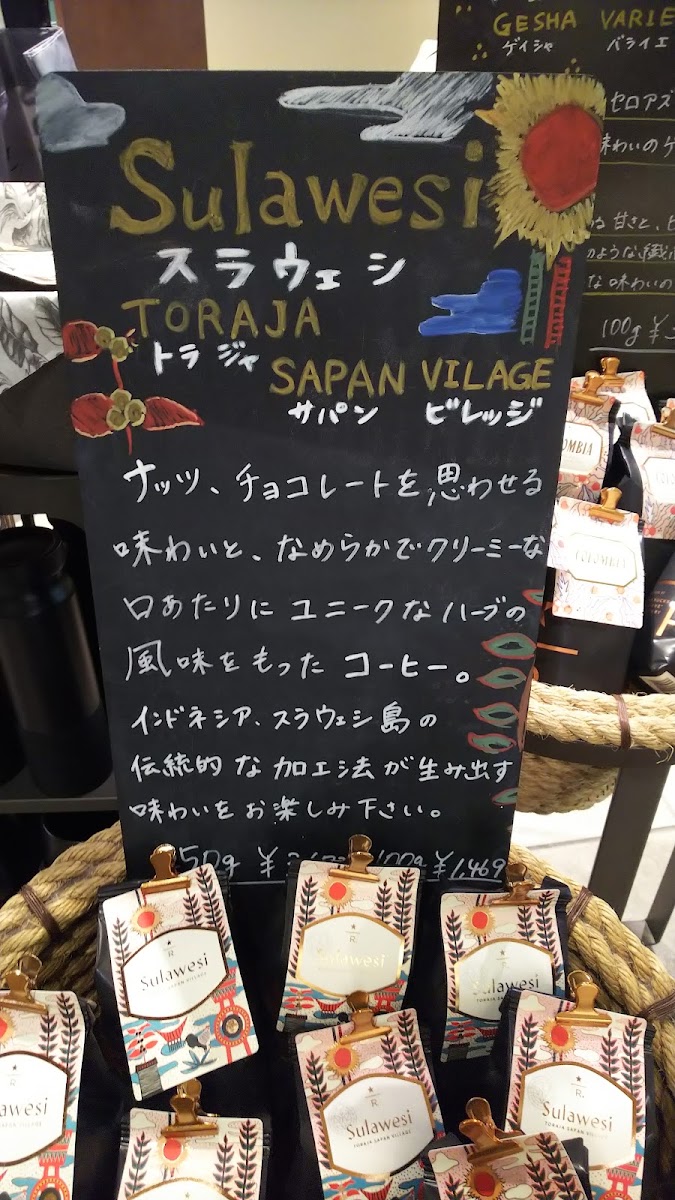 GESHA VARIE
ゲイシャ バライエ
セロアズ
味わいのゲ
甘さと、ヒ
のような繊
な味わいの
100g ¥
Sulawesi
スラウェシ
TORAJA
トラジャ
SAPAN VILAGE
サパン ビレッジ
ナッツ、チョコレートを思わせる
味わいと、なめらかでクリーミーな
口あたりに ユニークなハーブの
風味をもった コーヒー。
インドネシア、スラウェシ島の
伝統的な加工法が生み出す
味わいをお楽しみ下さい。
50g ¥ 100g ¥1,469
OMBIA
COLOMBIA
Sulawesi
SAPAN VILLAGE
Sulawesi
Sulawesi
TORAJA SA
awesi
R
Sulawesi
TORAJA SAPAN VILLAGE
R
Sulawesi
TORAJA SAPAN VILLAGE